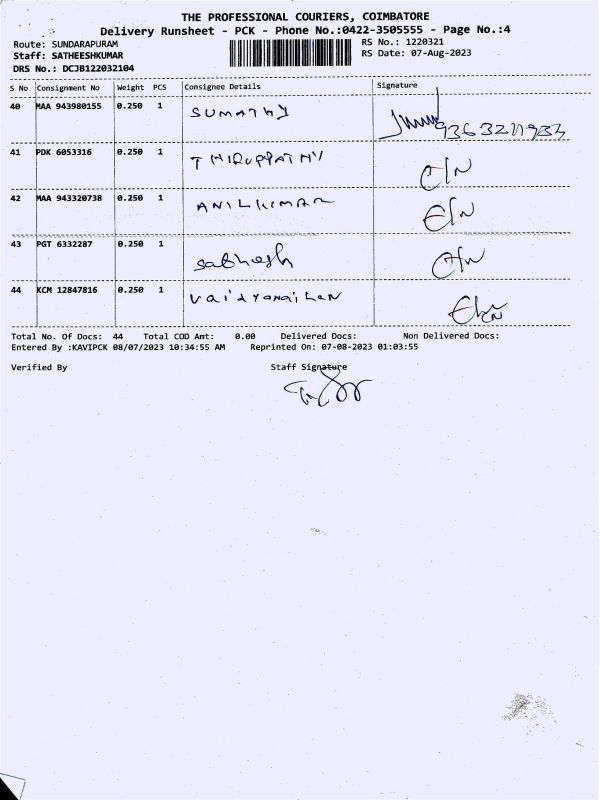 THE PROFESSIONAL COURIERS, COIMBATORE
Delivery Runsheet - PCK - Phone No.:0422-3505555 - Page No.:4
Route: SUNDARAPURAM RS No.: 1220321
Staff: SATHEESHKUMAR RS Date: 07-Aug-2023
DRS No.: DCJB122032104
S No Consignment No Weight PCS Consignee Details Signature
40 MAA 943980155 0.250 1 SUMATHY
41 PDK 6053316 0.250 1 THIRUPPATHY
42 MAA 943320738 0.250 1 ANILKUMAR
43 PGT 6332287 0.250 1 Sabhash
44 KCM 12847816 0.250 1 Vaidyanathan
Total No. Of Docs: 44 Total COD Amt: 0.00 Delivered Docs: Non Delivered Docs:
Entered By :KAVIPCK 08/07/2023 10:34:55 AM Reprinted On: 07-08-2023 01:03:55
Verified By Staff Signature